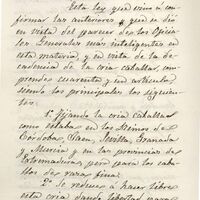 Esta ley que vino á con-
firmar las anteriores y que se dió
en vista del parecer de los Oficia-
les Generales más inteligentes en
esta materia, y en vista de la de-
cadencia de la cria caballar com-
prendes cuarenta y un articulos,
siendo los principales los siguien-
tes:
1.º Fijando la cria caballar
como estaba en los Reinos de
Córdoba, Jaen, Sevilla, Granada
y Murcia y en las provincias de
Extremadura pero para los caba-
llos de raza fina.
2.º Se reduce a hacer libre
esta cria dando libertad para